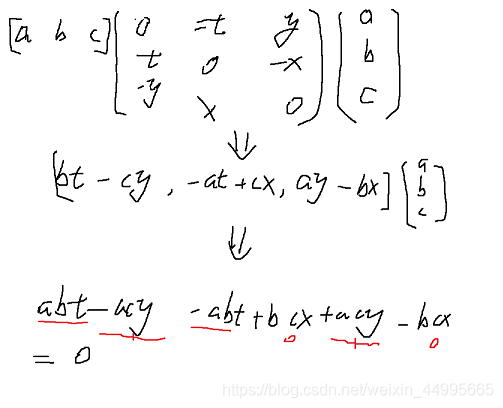 [a b c] ( 0 -t y ) ( a )
( t 0 -x ) ( b )
( -y x 0 ) ( c )
⇓
[bt - cy , -at + cx, ay - bx] [a b c]
⇓
abt - acy -abt + bcx + acy - bcx
= 0
https://blog.csdn.net/weixin_44995665